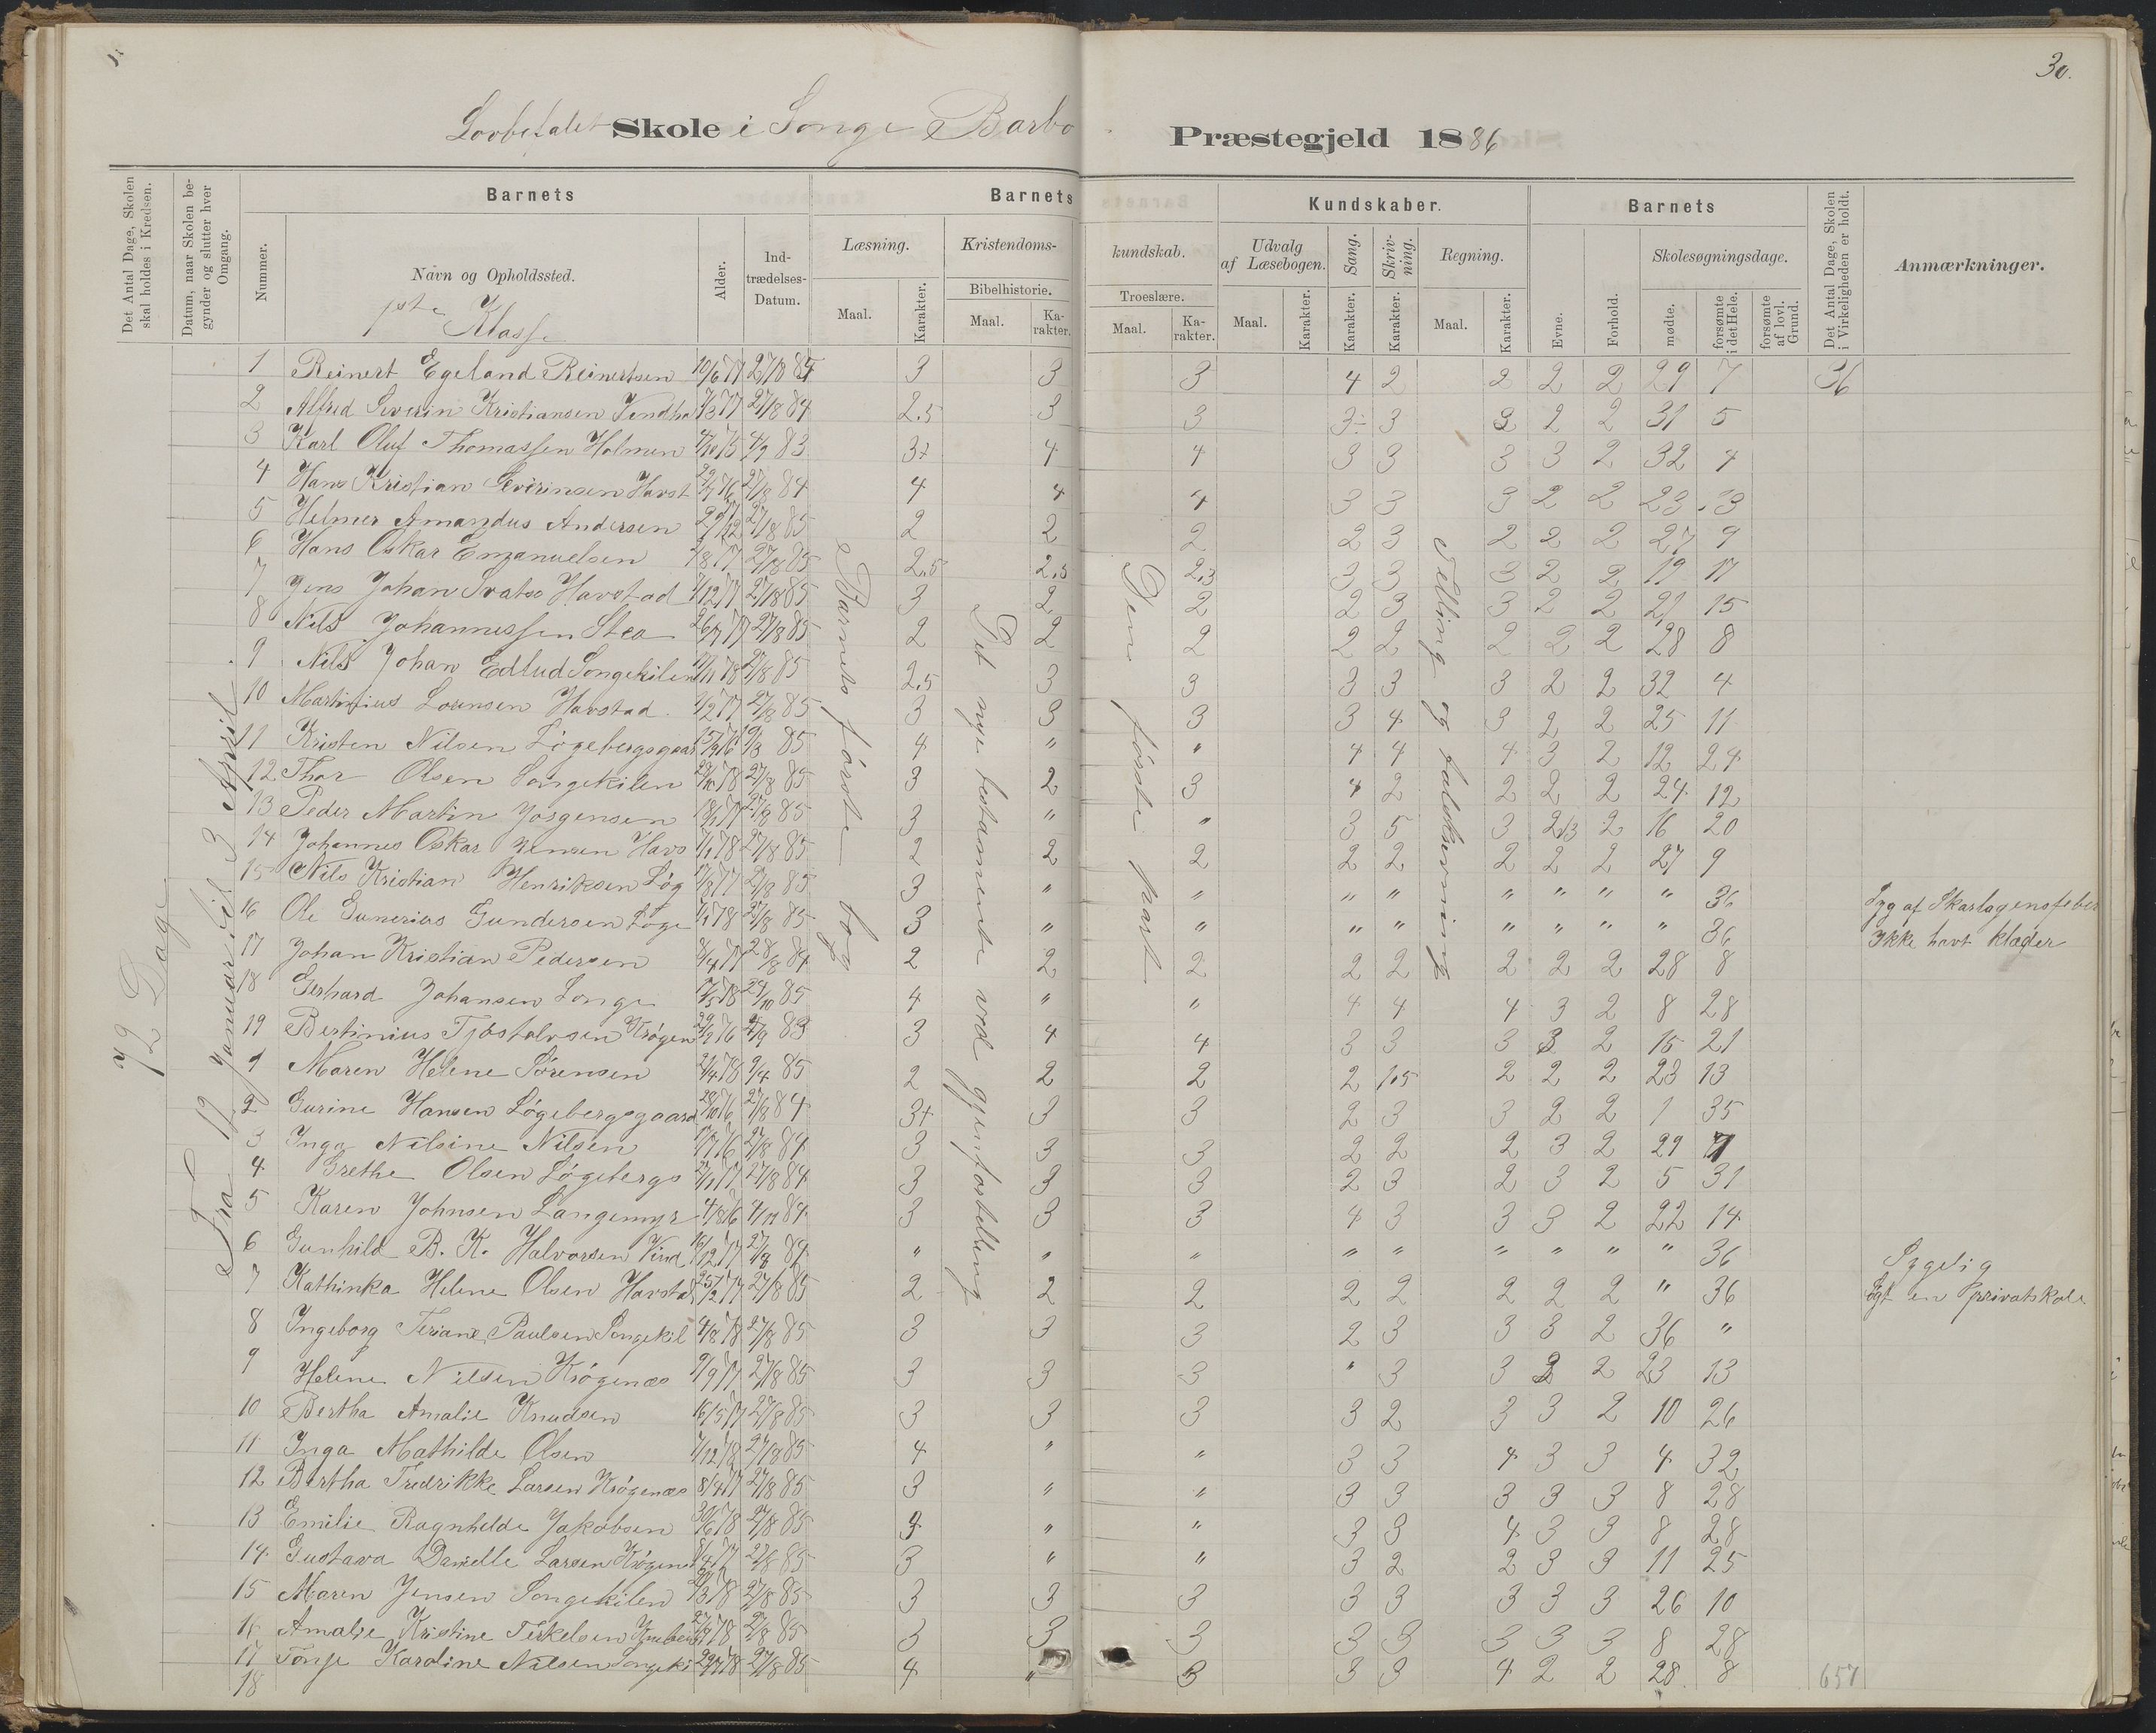 30.
Lovbefalet Skole i Songe Barbo Præstegjeld 1886
Det Antal Dage, Skolen skal holdes i Kredsen.
Datum, naar Skolen begynder og slutter hver Omgang.
Barnets
Nummer.
Navn og Opholdssted.
1ste Klasse
Alder.
Indtrædelses-Datum.
Barnets Kundskaber.
Læsning.
Maal.
Karakter.
Kristendomskundskab.
Bibelhistorie.
Maal.
Karakter.
Troeslære.
Maal.
Karakter.
Udvalg af Læsebogen.
Maal.
Karakter.
Sang.
Karakter.
Skrivning.
Karakter.
Regning.
Maal.
Karakter.
Barnets
Evne.
Forhold.
Skolesøgningsdage.
mødte.
forsømte i det Hele.
forsømte af lovl. Grund.
Det Antal Dage, Skolen i Virkeligheden er holdt.
Anmærkninger.
72 Dage
Fra 12 Januar til 3 April
Barnets første bog
Det nye testamente ved gjenfortelling
Den første part
Telling og talskrivning
1 Reinert Egeland Reinertsen 10/6 77 27/8 84 3 3 3 4 2 2 2 2 29 7 36
2 Alfred Severin Kristiansen 7/3 77 27/8 84 2.5 3 3 3÷ 3 3 2 2 31 5
3 Karl Oluf Thomassen Holmen 4/10 75 4/9 83 3+ 4 4 3 3 3 3 2 32 4
4 Hans Kristian Severinsen Havst 76 27/8 84 4 4 4 3 3 3 2 2 23 13
5 Helmer Amandus Andersen 27/8 85 2 2 2 2 3 2 2 2 27 9
6 Hans Oskar Emanuelsen 77 27/8 85 2.5 2.5 2.3 3 3 3 2 2 19 17
7 Jens Johan Havstad 77 27/8 85 3 2 2 2 3 3 2 2 21 15
8 Nils Johannessen Stea 26/7 77 27/8 85 2 2 2 2 2 2 2 2 28 8
9 Nils Johan Edlud Songekilen 78 27/8 85 2.5 3 3 3 3 3 2 2 32 4
10 Martinius Lorensen Havstad 77 27/8 85 3 3 3 3 4 3 2 2 25 11
11 Kristen Nilsen Løgebergsgaar 76 85 4 " " 4 4 4 3 2 12 24
12 Thor Olsen Songekilen 78 27/8 85 3 2 3 4 2 2 2 2 24 12
13 Peder Martin Jørgensen 77 27/8 85 3 " " 3 5 3 2.3 2 16 20
14 Johannes Oskar Jensen Havs 78 27/8 85 2 2 2 2 2 2 2 2 27 9
15 Nils Kristian Henriksen Løg 77 27/8 85 3 " " " " " " " " 36 Syg af Skarlagensfeber
16 Ole Gunerius Gundersen Løge 78 27/8 85 3 " " " " " " " " 36 Ikke havt klæder
17 Johan Kristian Pedersen 77 28/8 84 2 2 2 2 2 2 2 2 28 8
18 Gerhard Johansen Songe 78 29/10 85 4 " " 4 4 4 3 2 8 28
19 Bertinius Tjøstolvsen Krøgen 76 4/9 83 3 4 4 3 3 3 3 2 15 21
1 Maren Helene Sørensen 78 9/4 85 2 2 2 2 1.5 2 2 2 23 13
2 Gurine Hansen Løgebergsgaard 76 27/8 84 3+ 3 3 2 3 3 2 2 1 35
3 Inga Nilsine Nilsen 76 27/8 84 3 3 3 2 2 2 3 2 29 7
4 Grethe Olsen Løgebergs 77 27/8 84 3 3 3 2 3 2 3 2 5 31
5 Karen Johnsen Langemyr 76 84 3 3 3 4 3 3 3 2 22 14
6 Gunhild B. K. Halvorsen Vind 16/12 77 84 " " " " " " " " " 36 Sygelig
7 Kathinka Helene Olsen Havstad 25/2 77 27/8 85 2 2 2 2 2 2 2 2 " 36 Søgt en privatskole
8 Ingeborg Paulsen Songekil 78 27/8 85 3 3 3 2 3 3 3 2 36 "
9 Helene Nilsen Krøgenæs 9/9 77 27/8 85 3 3 3 " 3 3 2 2 23 13
10 Bertha Amalie Knudsen 16/5 77 27/8 85 3 3 3 3 2 3 3 2 10 26
11 Inga Mathilde Olsen 78 27/8 85 4 " " 3 3 4 3 3 4 32
12 Bertha Fredrikke Larsen Krøgenæs 8/4 77 27/8 85 3 " " 3 3 3 3 3 8 28
13 Emilie Ragnhilde Jakobsen 30/6 78 27/8 85 4 " " 3 3 4 3 3 8 28
14 Gustava Danielle Larsen Krøgenæs 77 27/8 85 3 " " 3 2 2 3 3 11 25
15 Maren Jensen Songekilen 78 27/8 85 3 3 3 3 3 3 3 3 26 10
16 Amalie Kristine Terkelsen 78 27/8 85 3 3 3 3 3 3 3 3 8 28
17 Tonje Karoline Nilsen Songeki 78 27/8 85 4 " 3 3 3 4 2 2 28 8 657
18